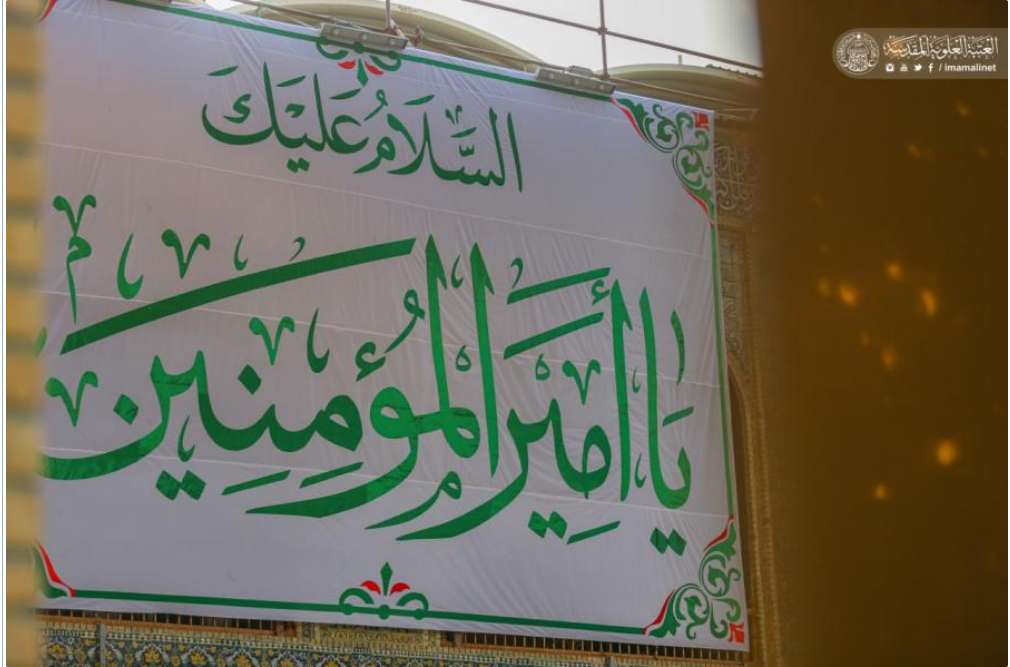 العتبة العلوية المقدسة
/ imamalinet
السَّلَامُ عَلَيْكَ
يَا أَمِيرَ الْمُؤْمِنِينَ